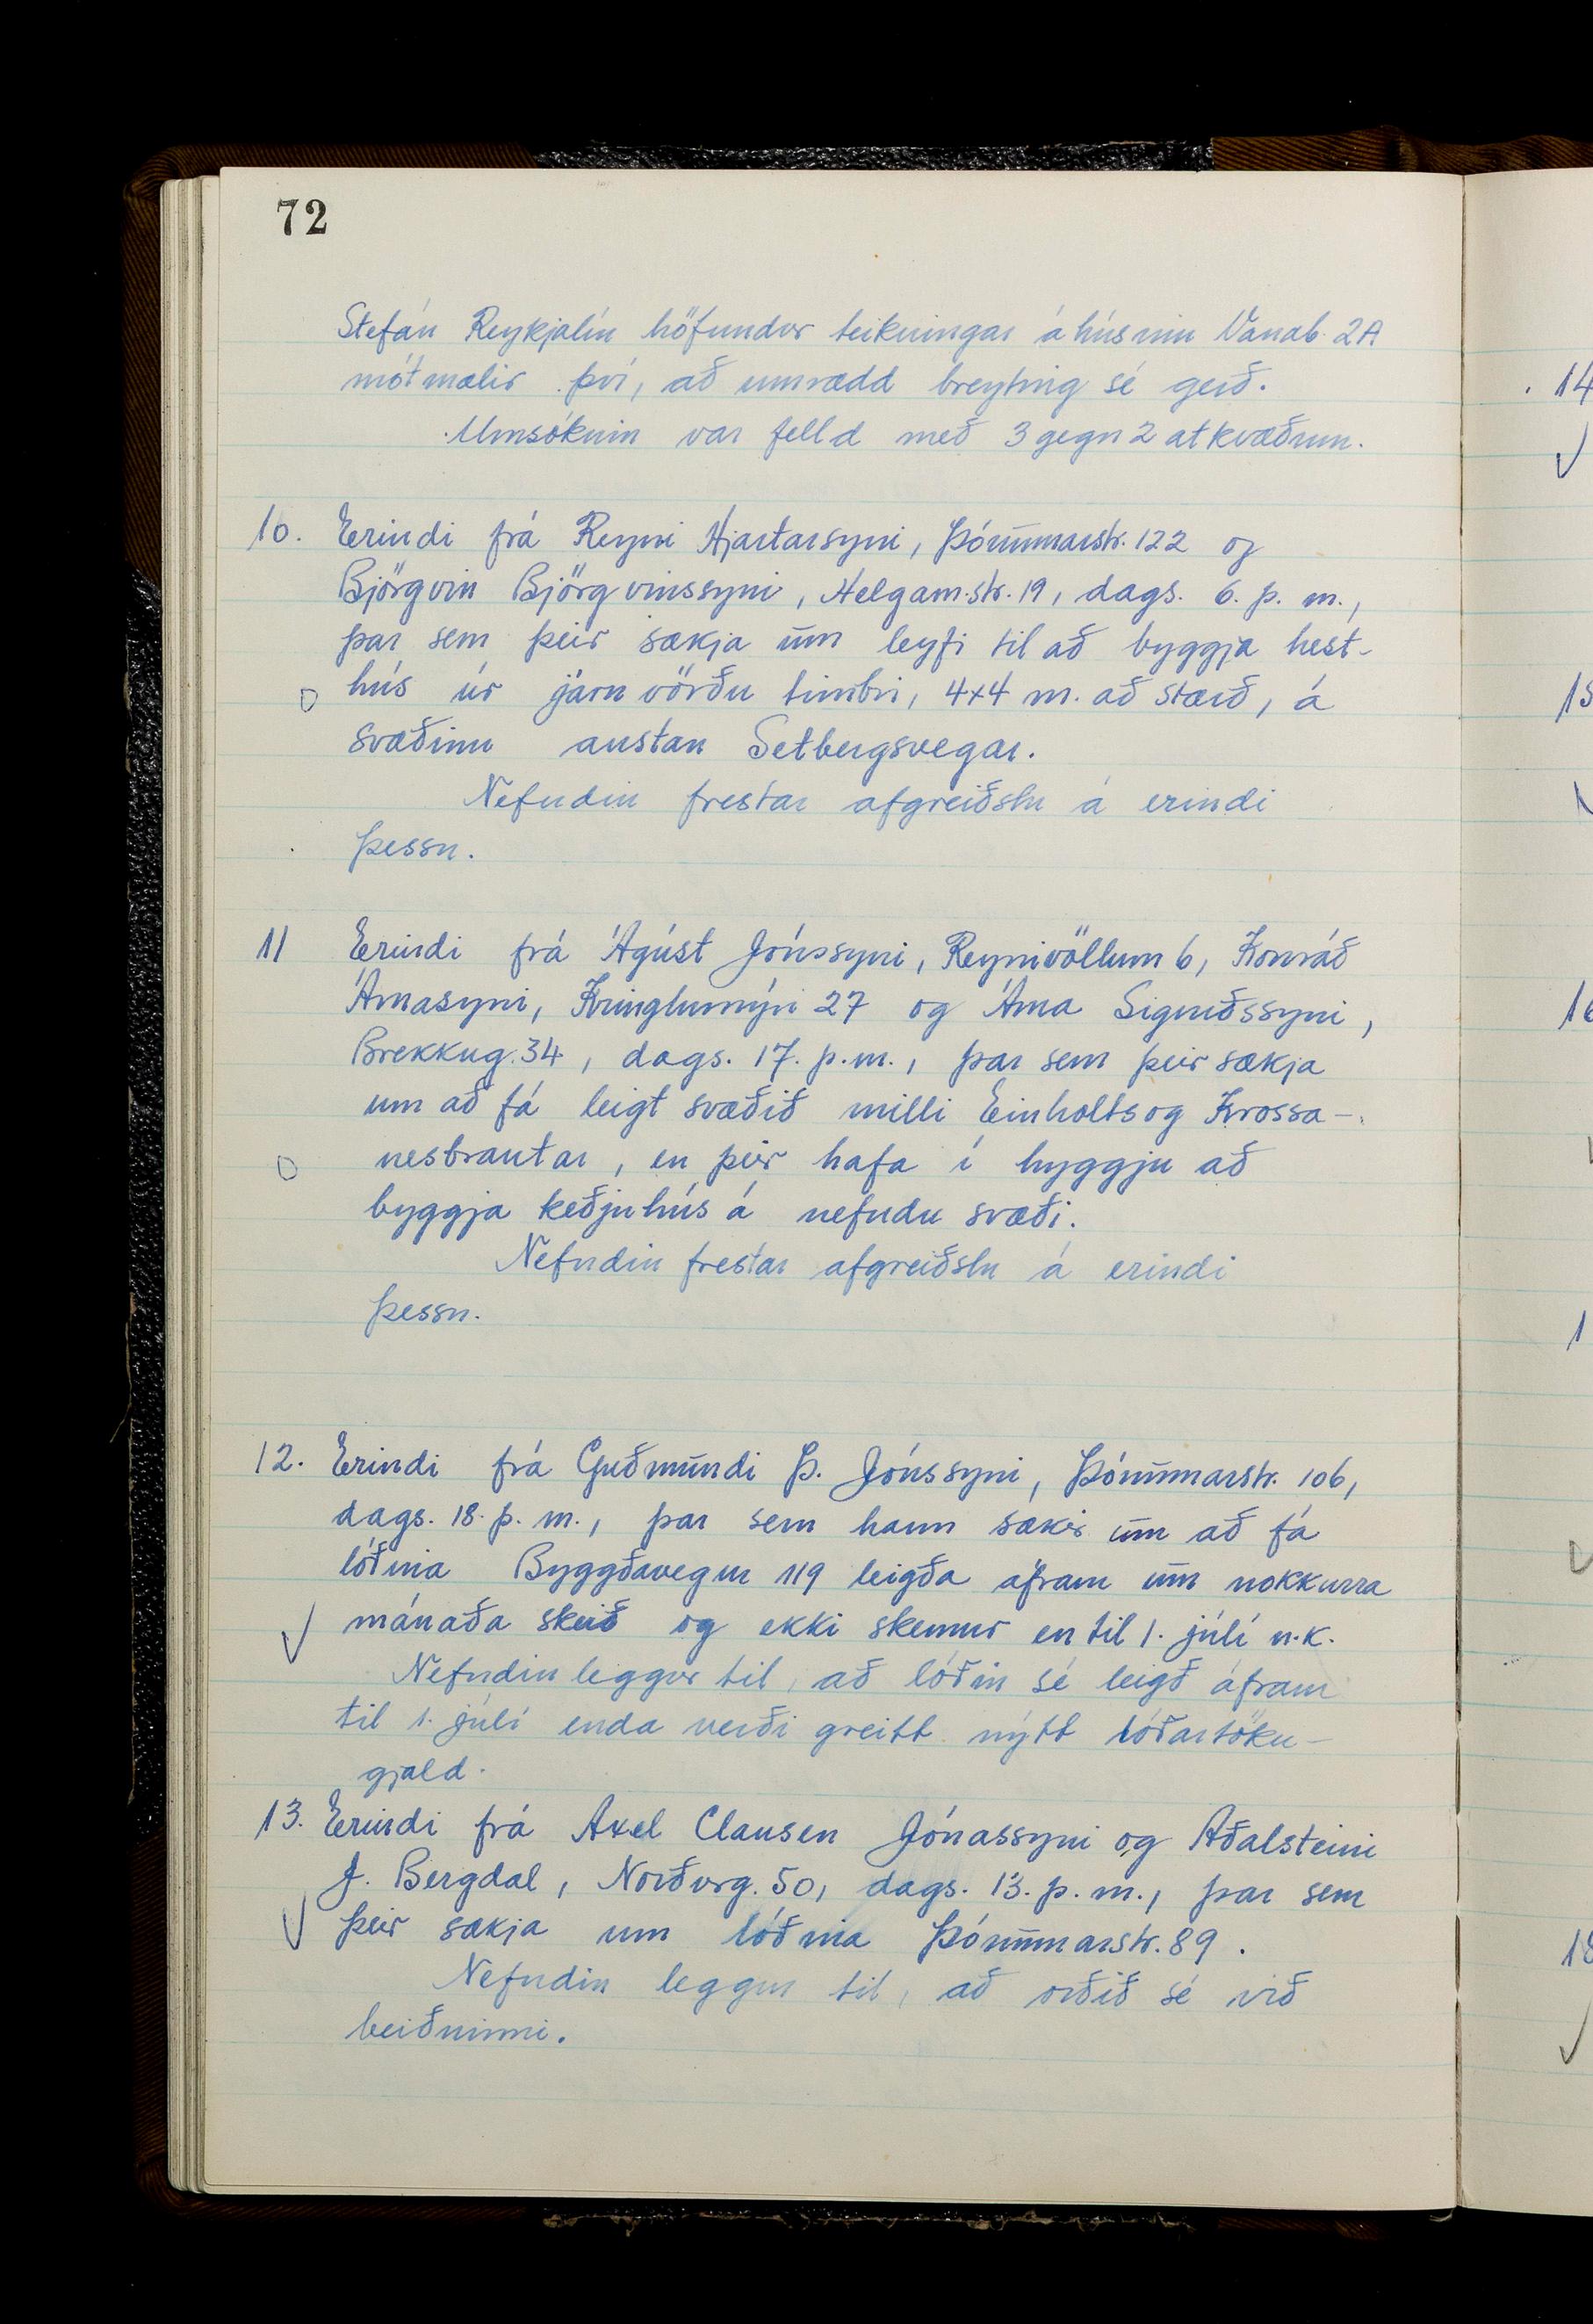 72
Stefán Reykjalín höfundur teikningar á húsinu Vanab. 2A
mótmælir því, að umrædd breyting sé gerð.
Umsóknin var felld með 3 gegn 2 atkvæðum.
10. Erindi frá Reyni Hjartarsyni, Þórunnarstr. 122 og
Björgvin Björgvinssyni, Helgam.str. 19, dags. 6. þ. m.,
þar sem þeir sækja um leyfi til að byggja hest-
hús úr járnvörðu timbri, 4x4 m. að stærð, á
svæðinu austan Setbergsvegar.
Nefndin frestar afgreiðslu á erindi
þessu.
11 Erindi frá Ágúst Jónssyni, Reynivöllum 6, Konráð
Árnasyni, Kringlumýri 27 og Árna Sigurðssyni,
Brekkug. 34, dags. 17. þ.m., þar sem þeir sækja
um að fá leigt svæðið milli Einholts og Krossa-
nesbrautar, en þeir hafa í hyggju að
byggja keðjuhús á nefndu svæði.
Nefndin frestar afgreiðslu á erindi
þessu.
12. Erindi frá Guðmundi Þ. Jónssyni, Þórunnarstr. 106,
dags. 18. þ. m., þar sem hann sækir um að fá
lóðina Byggðavegur 119 leigða áfram um nokkurra
mánaða skeið og ekki skemur en til 1. júlí n.k.
Nefndin leggur til, að lóðin sé leigð áfram
til 1. júlí enda verði greitt nýtt lóðartöku-
gjald.
13. Erindi frá Axel Clausen Jónassyni og Aðalsteini
J. Bergdal, Norðurg. 50, dags. 13. þ. m., þar sem
þeir sækja um lóðina Þórunnarstr. 89.
Nefndin leggur til, að orðið sé við
beiðninni.
14
16
18